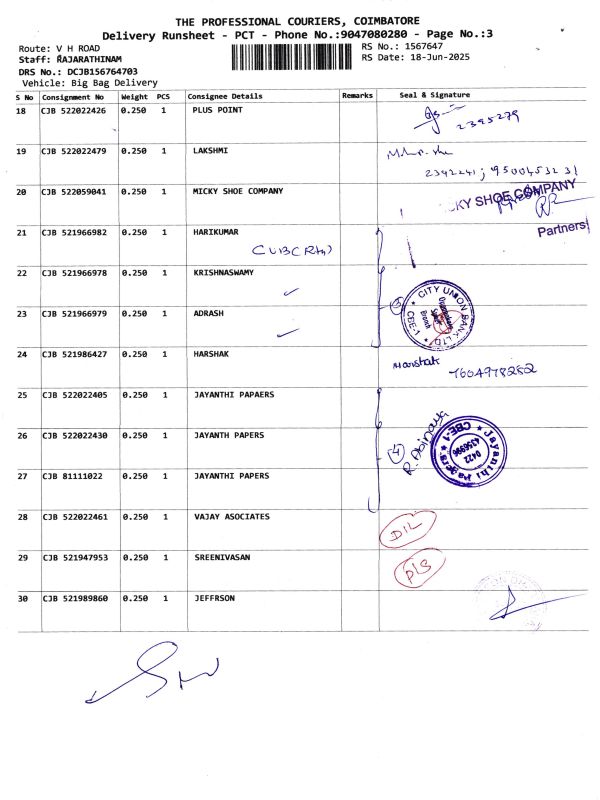 THE PROFESSIONAL COURIERS, COIMBATORE
Delivery Runsheet - PCT - Phone No.:9047080280 - Page No.:3
Route: V H ROAD
RS No.: 1567647
Staff: RAJARATHINAM
RS Date: 18-Jun-2025
DRS No.: DCJB156764703
Vehicle: Big Bag Delivery
S No Consignment No Weight PCS Consignee Details Remarks Seal & Signature
18 CJB 522022426 0.250 1 PLUS POINT
2395279
19 CJB 522022479 0.250 1 LAKSHMI
2392241; 9500453231
20 CJB 522059041 0.250 1 MICKY SHOE COMPANY
KY SHOE COMPANY
Partners
21 CJB 521966982 0.250 1 HARIKUMAR
CUB
22 CJB 521966978 0.250 1 KRISHNASWAMY
23 CJB 521966979 0.250 1 ADRASH
3
CITY UNION BANK LTD. CBE-1
Branch
24 CJB 521986427 0.250 1 HARSHAK
Harshak 7604978282
25 CJB 522022405 0.250 1 JAYANTHI PAPAERS
26 CJB 522022430 0.250 1 JAYANTH PAPERS
4
R. Abinaya
Jayanthi Papers CBE-1
0422
4356996
27 CJB 81111022 0.250 1 JAYANTHI PAPERS
28 CJB 522022461 0.250 1 VAJAY ASOCIATES
DIL
29 CJB 521947953 0.250 1 SREENIVASAN
30 CJB 521989860 0.250 1 JEFFRSON